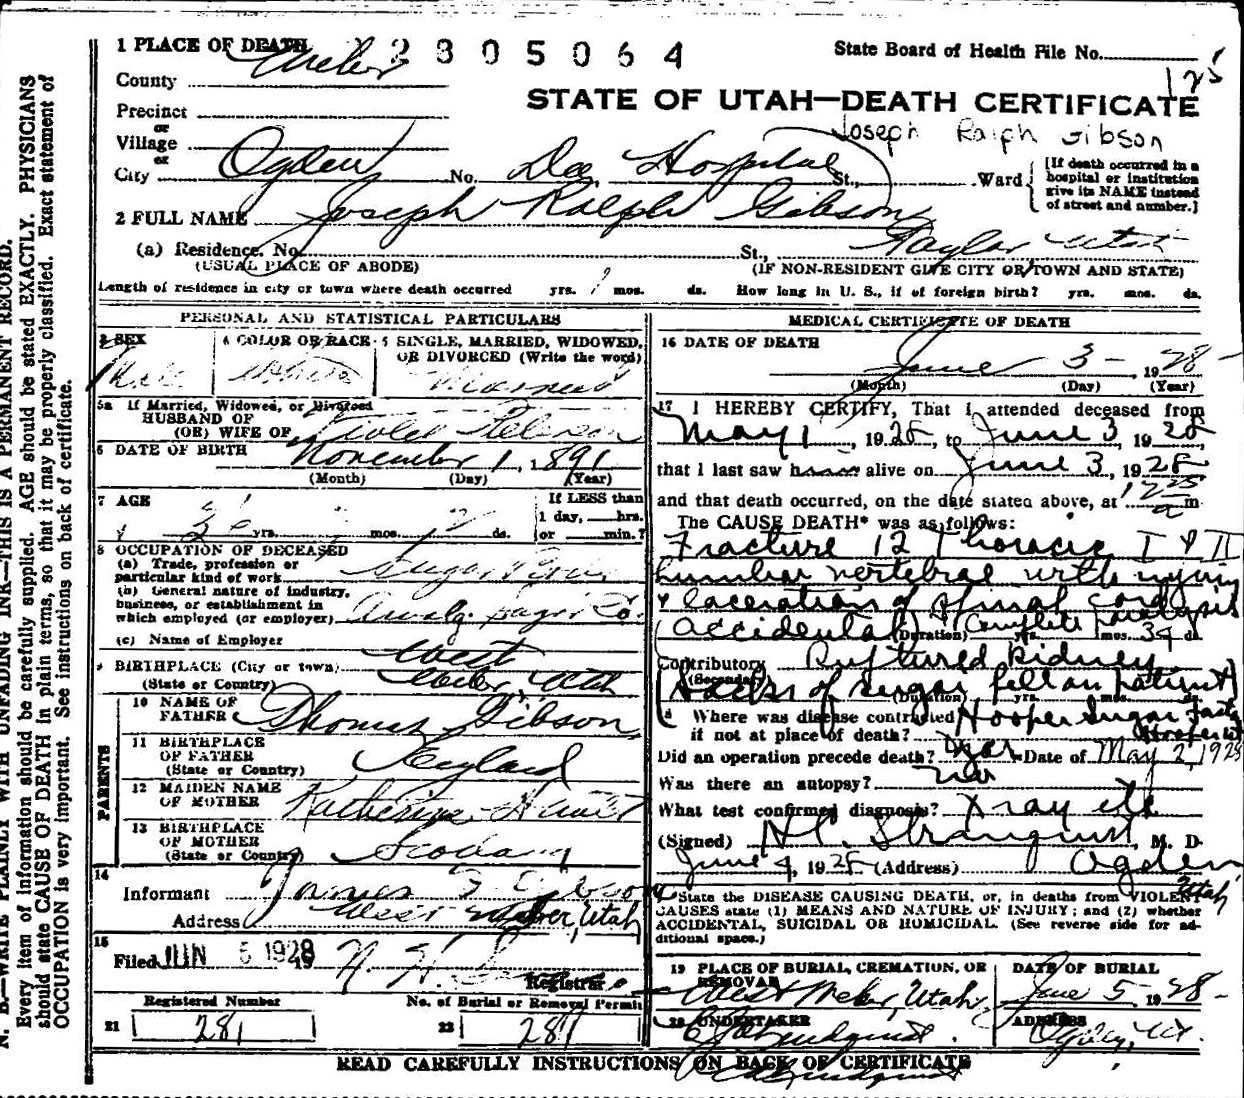 1 PLACE OF DEATH 2305064 State Board of Health File No.
County Weber 125
STATE OF UTAH—DEATH CERTIFICATE
Precinct
or
Village
or
Joseph Ralph Gibson
City Ogden No. Dee Hospital St., Ward
[If death occurred in a hospital or institution give its NAME instead of street and number.]
2 FULL NAME Joseph Ralph Gibson
(a) Residence. No. St., Taylor Utah
(USUAL PLACE OF ABODE) (IF NON-RESIDENT GIVE CITY OR TOWN AND STATE)
Length of residence in city or town where death occurred yrs. 1 mos. ds. How long in U. S., if of foreign birth? yrs. mos. ds.
PERSONAL AND STATISTICAL PARTICULARS
3 SEX 4 COLOR OR RACE 5 SINGLE, MARRIED, WIDOWED, OR DIVORCED (Write the word)
Male White Married
5a If Married, Widowed, or Divorced
HUSBAND OF
(OR) WIFE OF Violet
6 DATE OF BIRTH November 1, 1891
(Month) (Day) (Year)
7 AGE If LESS than
1 day, hrs.
36 yrs. mos. ds. or min.?
8 OCCUPATION OF DECEASED
(a) Trade, profession or
particular kind of work Sugar
(b) General nature of industry,
business, or establishment in
which employed (or employer) Amalg. Sugar Co.
(c) Name of Employer
9 BIRTHPLACE (City or town) West
(State or Country) Weber, Utah
PARENTS
10 NAME OF
FATHER Thomas Gibson
11 BIRTHPLACE
OF FATHER
(State or Country)
12 MAIDEN NAME
OF MOTHER Katherine
13 BIRTHPLACE
OF MOTHER
(State or Country)
14
Informant James Gibson
Address West Weber, Utah
15
Filed JUN 5 1928 19
Registrar
Registered Number No. of Burial or Removal Permit
21 281 22 281
MEDICAL CERTIFICATE OF DEATH
16 DATE OF DEATH
June 3 - 1928 -
(Month) (Day) (Year)
17 I HEREBY CERTIFY, That I attended deceased from
May 1, 1928, to June 3, 1928
that I last saw him alive on June 3, 1928
and that death occurred, on the date stated above, at 1 25 a m
The CAUSE DEATH* was as follows:
Fracture 12 Thoracic I & II
lumbar vertebrae with injury
& laceration of spinal cord
(Accidental) Complete paralysis
(Duration) yrs. mos. 34 ds.
Contributory Ruptured kidney
(Secondary)
(Sacks of sugar fell on patient)
(Duration) yrs. mos. ds.
18 Where was disease contracted Hooper Sugar Facty
if not at place of death? Hooper Ut
Did an operation precede death? Yes Date of May 2, 1928
Was there an autopsy? no
What test confirmed diagnosis? X ray etc
(Signed) M. D.
June 4, 1928 (Address) Ogden, Utah
*State the DISEASE CAUSING DEATH, or, in deaths from VIOLENT
CAUSES state (1) MEANS AND NATURE OF INJURY; and (2) whether
ACCIDENTAL, SUICIDAL OR HOMICIDAL. (See reverse side for ad-
ditional space.)
19 PLACE OF BURIAL, CREMATION, OR REMOVAL DATE OF BURIAL
West Weber, Utah June 5, 1928 -
20 UNDERTAKER ADDRESS
Lindquist Ogden, Ut.
READ CAREFULLY INSTRUCTIONS ON BACK OF CERTIFICATE
N. B.—WRITE PLAINLY WITH UNFADING INK—THIS IS A PERMANENT RECORD.
Every item of information should be carefully supplied. AGE should be stated EXACTLY. PHYSICIANS
should state CAUSE OF DEATH in plain terms, so that it may be properly classified. Exact statement of
OCCUPATION is very important. See instructions on back of certificate.